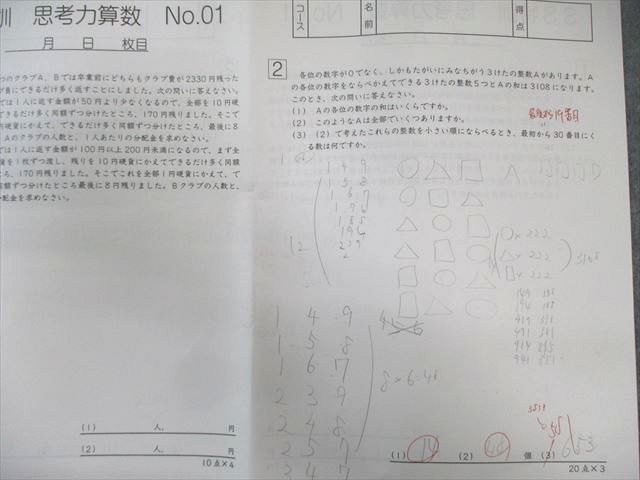 訓 思考力算数 No.01
月 日 枚目
コース
名前
得点
つのクラブA，Bでは卒業前にどちらもクラブ費が2330円残った
ブ員にできるだけ多く返すことにしました。次の問いに答えなさい。
では1人に返す金額が50円より少なくなるので，全部を10円硬
できるだけ多く同額ずつ分けたところ，170円残りました。そこ
円硬貨にかえて，できるだけ多く同額ずつ分けたところ，最後に8
Aのクラブの人数と，1人あたりの分配金を求めなさい。
では1人に返す金額が100円以上200円未満になるので，まず全
貨を1枚ずつ渡し，残りを10円硬貨にかえてできるだけ多く同額
ろ，170円残りました。そこでこれを全部1円硬貨にかえて，で
額ずつ分けたところ最後に8円残りました。Bクラブの人数と，
配金を求めなさい。
(1) 人， 円
(2) 人， 円
10点×4
2 各位の数字が0でなく，しかもたがいにみなちがう3けたの整数Aがあります。A
の各位の数字をならべかえてできる3けたの整数5つとAの和は3108になります。
このとき，次の問いに答えなさい。
(1) Aの各位の数字の和はいくらですか。
(2) このようなAは全部でいくつありますか。
(3) (2)で考えたこれらの整数を小さい順にならべるとき，最初から30番目にく
る数は何ですか。
1 4 9
1 5 8
1 6 7
1 7 6
1 8 5
1 9 4
2 3 9
×222
×222
×222
3108
149
194
419
491
914
941
1 4 9
1 5 8
1 6 7
2 3 9
2 4 8
2 5 7
3 4 7
8×6=48
(1) 14 (2) 個 (3) 653
20点×3